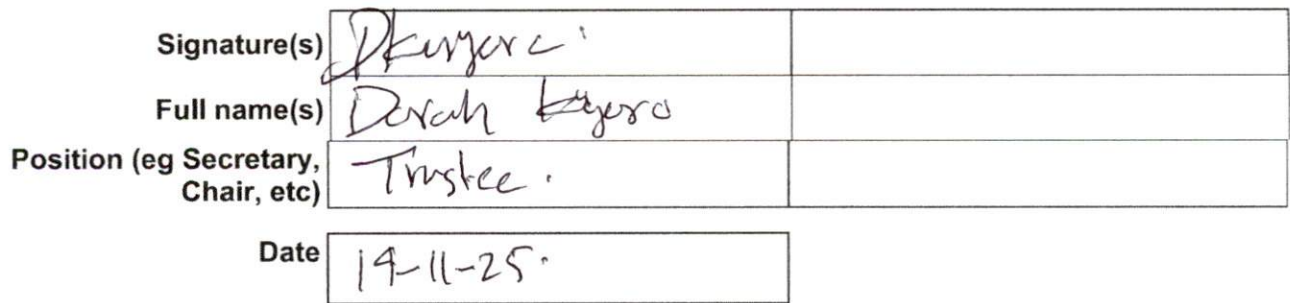 Signature(s)
Full name(s) Dorah
Position (eg Secretary,
Chair, etc) Trustee.
Date 19-11-25.